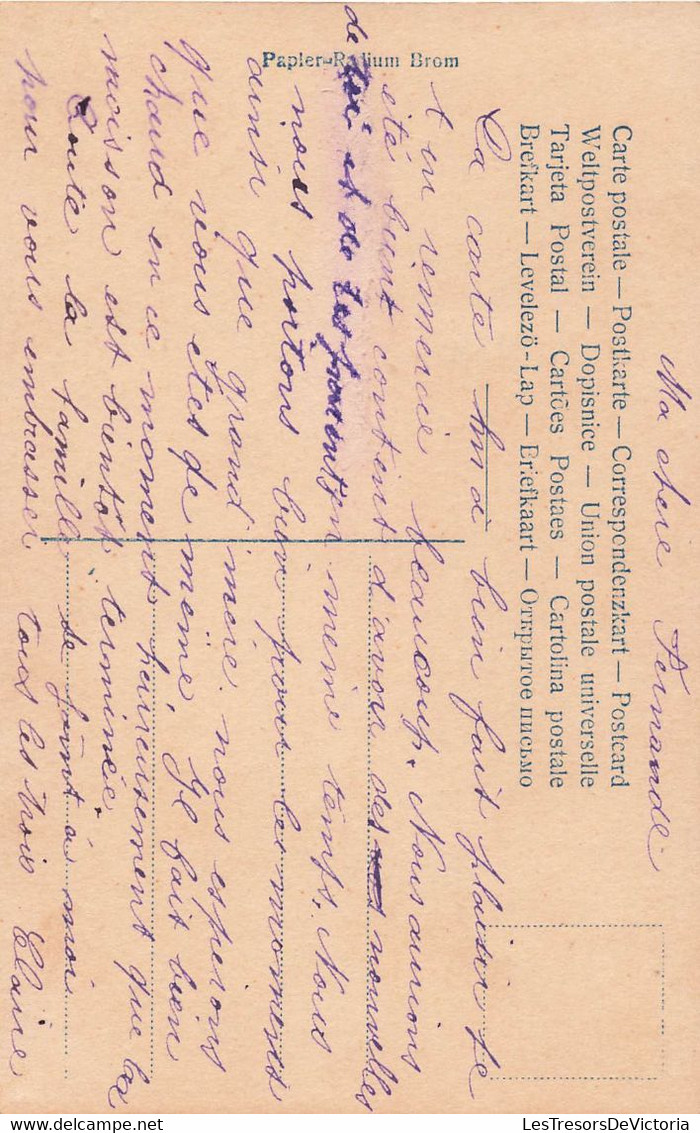 Carte postale — Postkarte — Correspondenzkart — Postcard
Weltpostverein — Dopisnice — Union postale universelle
Tarjeta Postal — Cartões Postaes — Cartolina postale
Brefkart — Levelezö-Lap — Briefkaart — Открытое письмо
Papier-Radium Brom
Ma chere Fernande
Ta carte m'a bien fait plaisir je
t en remercie beaucoup. Nous aurions
été bient contient d'avoir des nouvelles
de toi et de tes parent en meme temps. Nous
nous portons bien pour les moments
ainsi que grand'mère. nous esperons
que vous étes de même, Il fait bien
chaud en ce moment heureusement que la
moisson est bientôt terminée.
Toute la famille se joint à moi
pour vous embrasser tous les trois Claire
LesTresorsDeVictoria